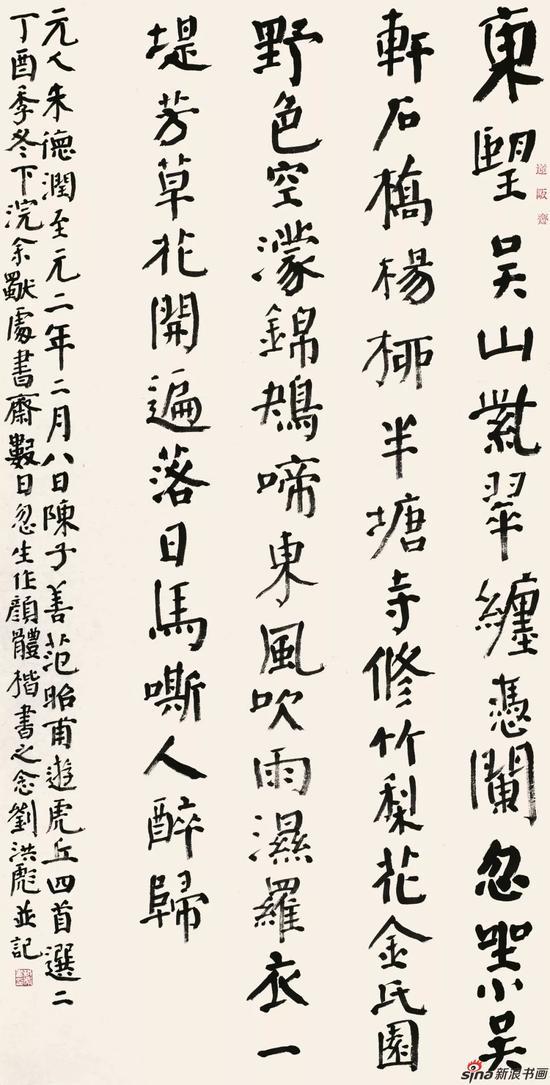 遠畈齋
東望吴山紫翠纏憑闌忽坐小吴
軒石橋楊柳半塘寺修竹梨花金氏園
野色空濛錦啼東風吹雨濕羅衣一
堤芳草花開遍落日馬嘶人醉歸
元人朱德潤至元二年二月八日陳子善范昭甫遊虎丘四首選二
丁酉季冬下浣余處書齋數日忽生作顏體楷書之念劉洪彪並記
sina新浪书画